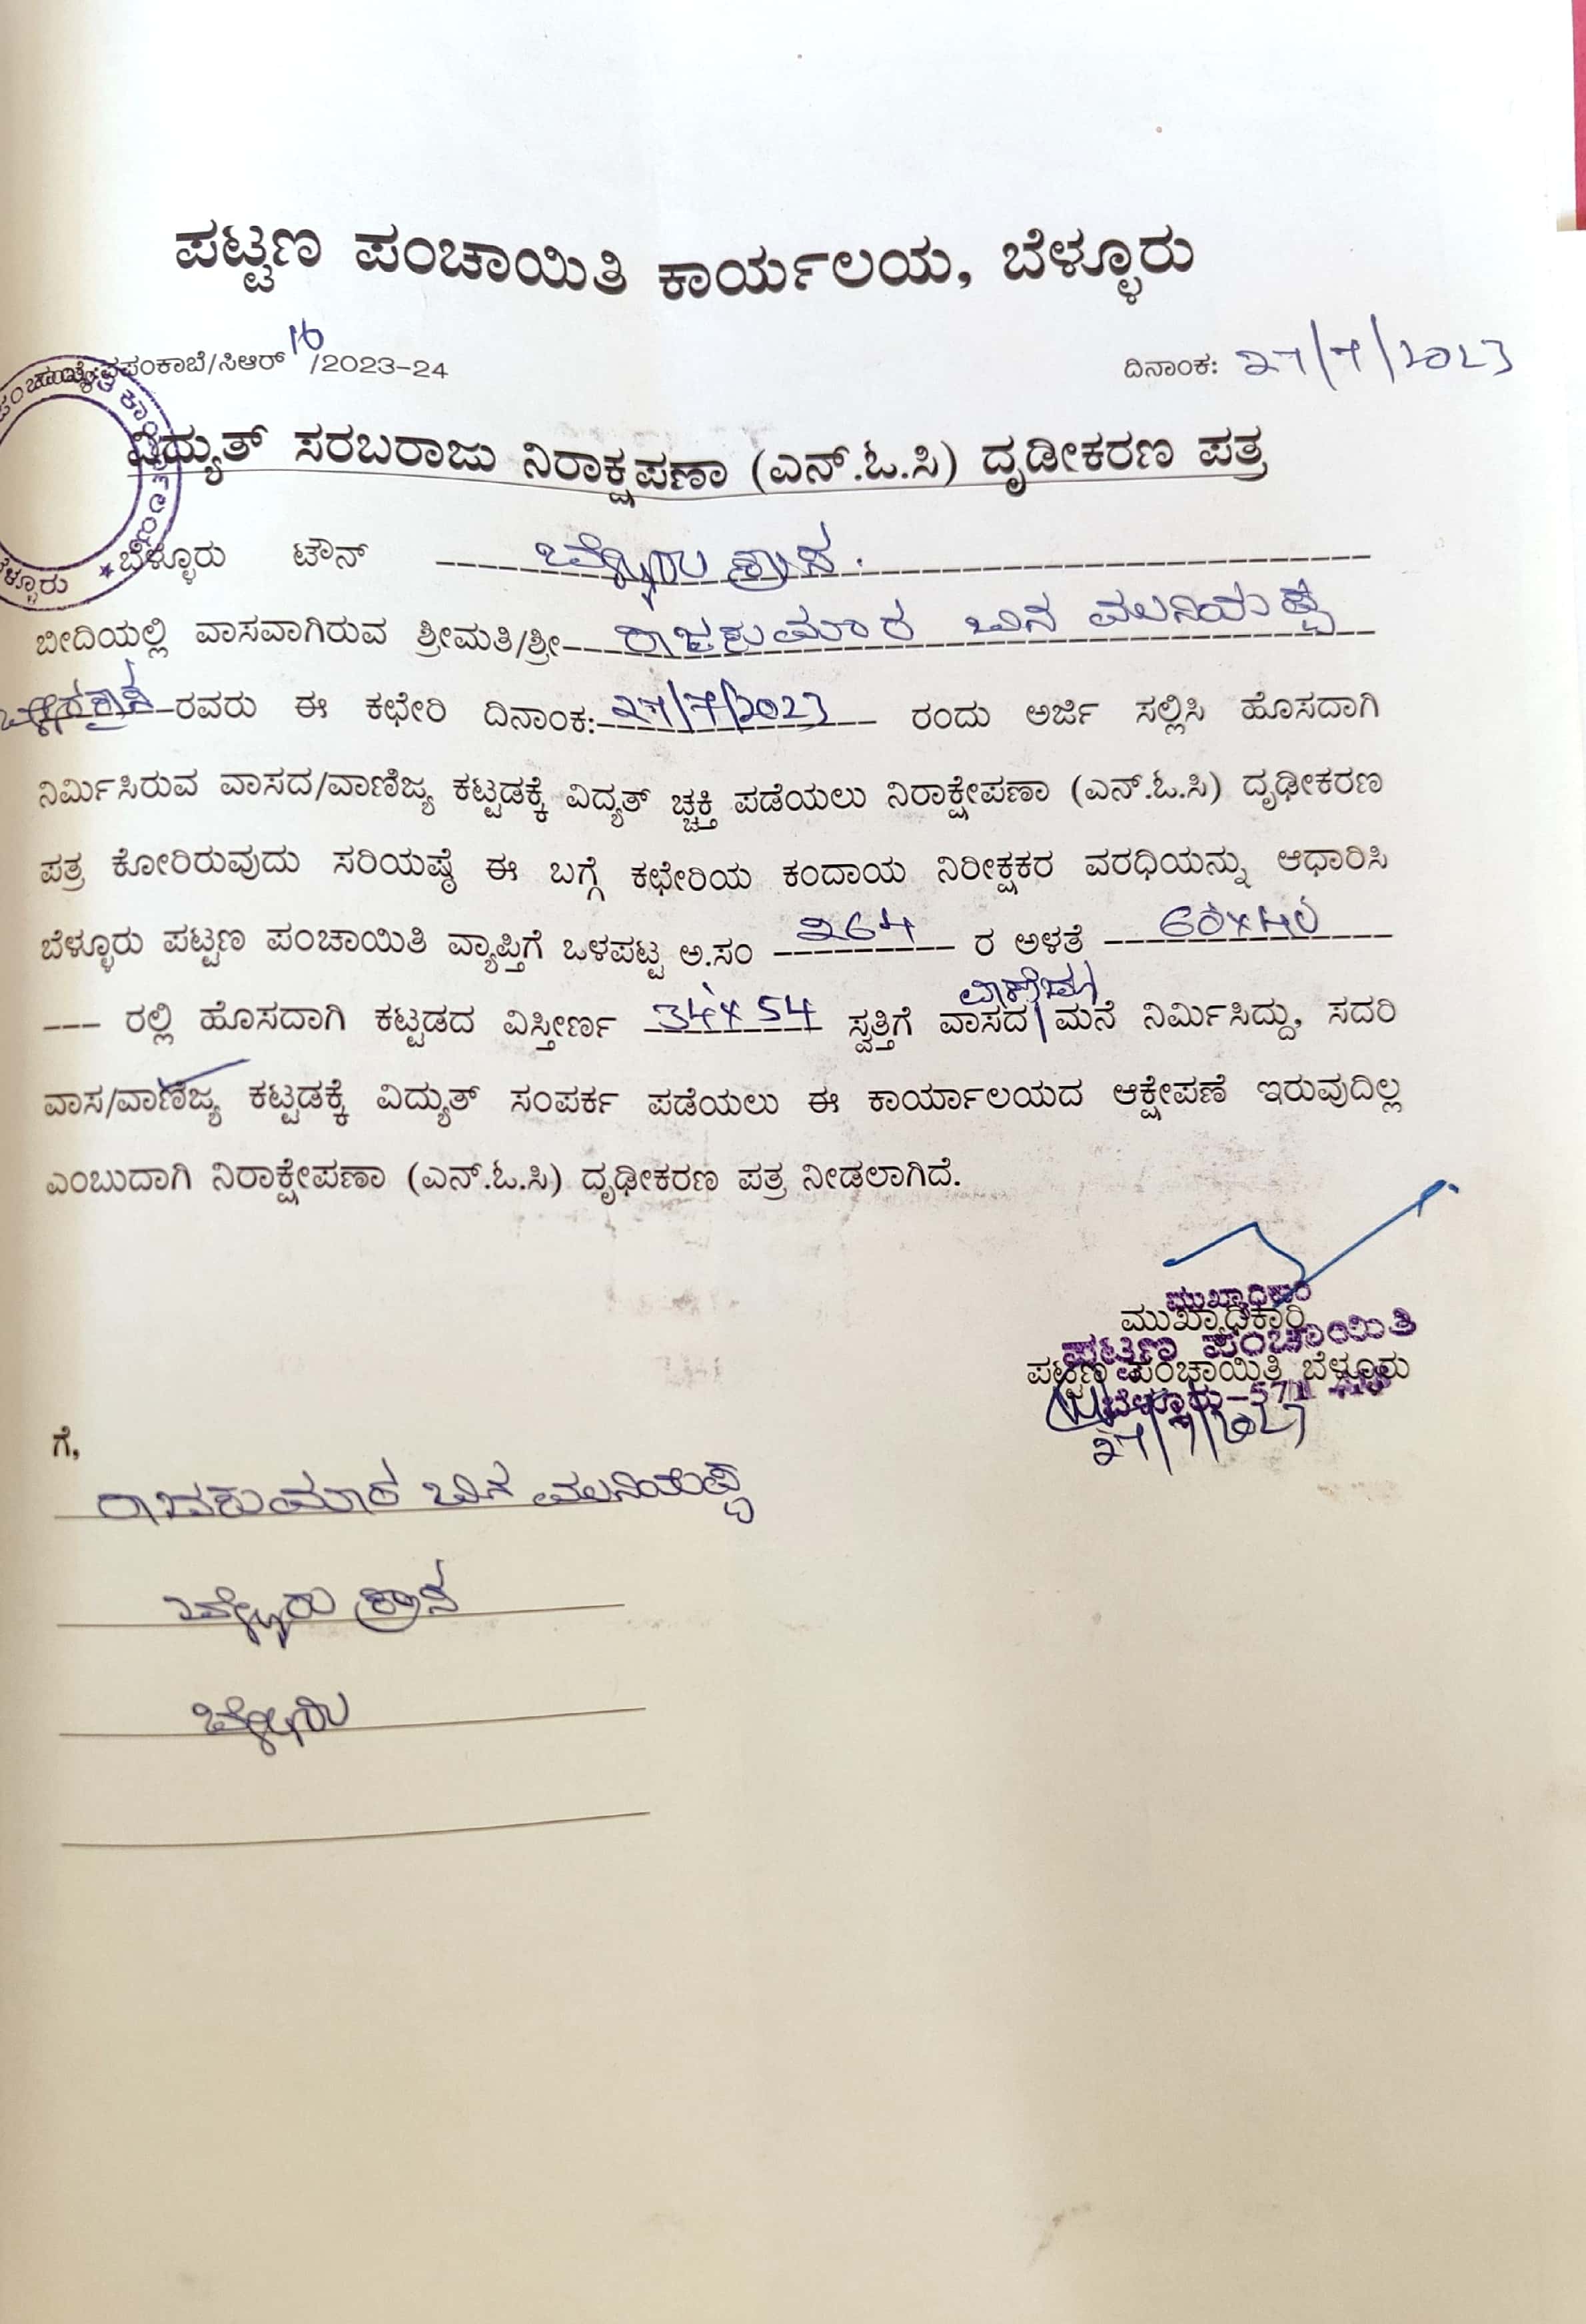 ಪಟ್ಟಣ ಪಂಚಾಯಿತಿ ಕಾರ್ಯಲಯ, ಬೆಳ್ಳೂರು
ಪಪಂಕಾಬೆ/ಸಿಆರ್ 16/2023-24 ದಿನಾಂಕ: 27/7/2023
ವಿದ್ಯುತ್ ಸರಬರಾಜು ನಿರಾಕ್ಷಪಣಾ (ಎನ್.ಓ.ಸಿ) ದೃಡೀಕರಣ ಪತ್ರ
ಬೆಳ್ಳೂರು ಟೌನ್ ಬೆಳ್ಳೂರು ಟೌನ್
ಬೀದಿಯಲ್ಲಿ ವಾಸವಾಗಿರುವ ಶ್ರೀಮತಿ/ಶ್ರೀ ರಾಜಕುಮಾರ ಬಿನ್ ಮುನಿಯಪ್ಪ
ರವರು ಈ ಕಛೇರಿ ದಿನಾಂಕ: 27/7/2023 ರಂದು ಅರ್ಜಿ ಸಲ್ಲಿಸಿ ಹೊಸದಾಗಿ
ನಿರ್ಮಿಸಿರುವ ವಾಸದ/ವಾಣಿಜ್ಯ ಕಟ್ಟಡಕ್ಕೆ ವಿದ್ಯತ್ ಚ್ಚಕ್ತಿ ಪಡೆಯಲು ನಿರಾಕ್ಷೇಪಣಾ (ಎನ್.ಓ.ಸಿ) ದೃಢೀಕರಣ
ಪತ್ರ ಕೋರಿರುವುದು ಸರಿಯಷ್ಠೆ ಈ ಬಗ್ಗೆ ಕಛೇರಿಯ ಕಂದಾಯ ನಿರೀಕ್ಷಕರ ವರಧಿಯನ್ನು ಆಧಾರಿಸಿ
ಬೆಳ್ಳೂರು ಪಟ್ಟಣ ಪಂಚಾಯಿತಿ ವ್ಯಾಪ್ತಿಗೆ ಒಳಪಟ್ಟ ಅ.ಸಂ 264 ರ ಅಳತೆ 60x40
--- ರಲ್ಲಿ ಹೊಸದಾಗಿ ಕಟ್ಟಡದ ವಿಸ್ತೀರ್ಣ 34x54 ಸ್ವತ್ತಿಗೆ ವಾಸದ ಮನೆ ನಿರ್ಮಿಸಿದ್ದು, ಸದರಿ
ವಾಸ/ವಾಣಿಜ್ಯ ಕಟ್ಟಡಕ್ಕೆ ವಿದ್ಯುತ್ ಸಂಪರ್ಕ ಪಡೆಯಲು ಈ ಕಾರ್ಯಾಲಯದ ಆಕ್ಷೇಪಣೆ ಇರುವುದಿಲ್ಲ
ಎಂಬುದಾಗಿ ನಿರಾಕ್ಷೇಪಣಾ (ಎನ್.ಓ.ಸಿ) ದೃಢೀಕರಣ ಪತ್ರ ನೀಡಲಾಗಿದೆ.
ಮುಖ್ಯಾಧಿಕಾರಿ
ಮುಖ್ಯಾಧಿಕಾರಿ
ಪಟ್ಟಣ ಪಂಚಾಯಿತಿ
ಪಟ್ಟಣ ಪಂಚಾಯಿತಿ ಬೆಳ್ಳೂರು
ಬೆಳ್ಳೂರು-571
27/7/2023
ಗೆ,
ರಾಜಕುಮಾರ ಬಿನ್ ಮುನಿಯಪ್ಪ
ಬೆಳ್ಳೂರು ಟೌನ್
ಬೆಳ್ಳೂರು